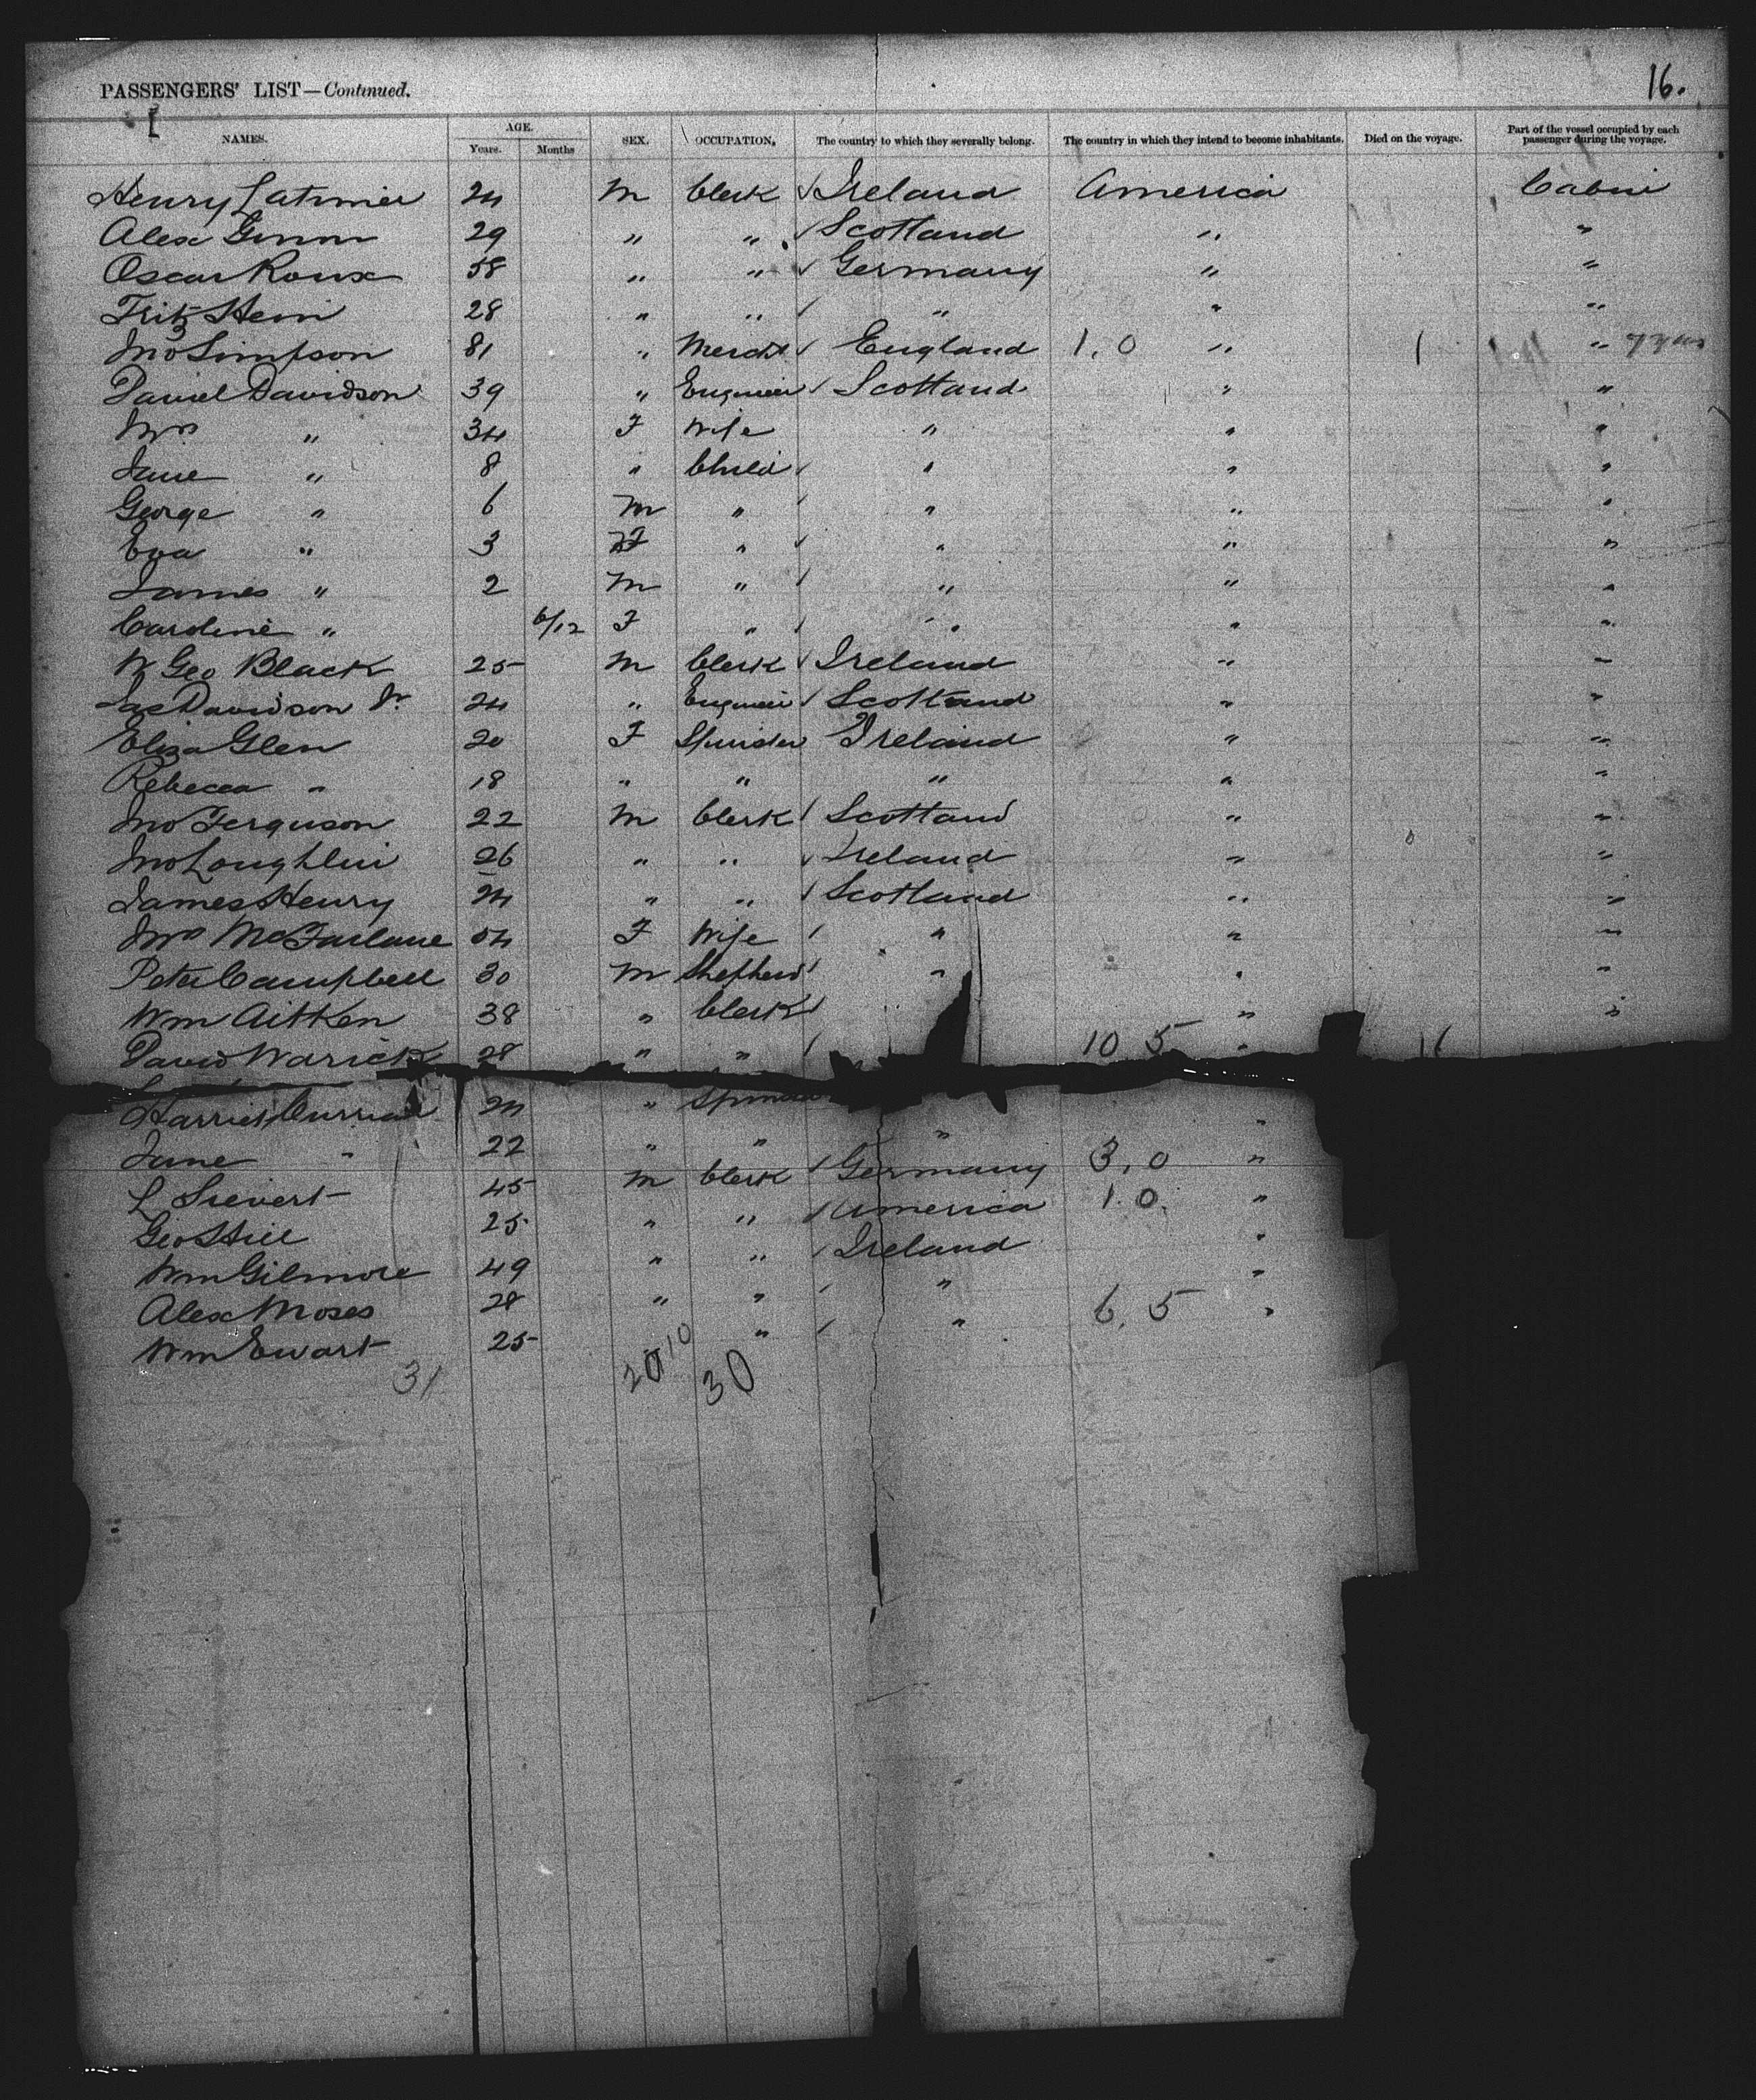 PASSENGERS' LIST—Continued. 16.
NAMES. AGE. Years. Months SEX. OCCUPATION. The country to which they severally belong. The country in which they intend to become inhabitants. Died on the voyage. Part of the vessel occupied by each passenger during the voyage.
Henry Latimer 24 M Clerk Ireland America Cabin
Alex 29 " " Scotland " "
Oscar Roux 58 " " Germany " "
Fritz 28 " " " " "
Jno Simpson 81 " Mercht England 1.0 " 1 "
Daniel Davidson 39 " Engineer Scotland " "
Mrs " 34 F Wife " " "
Jane " 8 " Child " " "
George " 6 M " " " "
Eva " 3 F " " " "
James " 2 M " " " "
Caroline " 6/12 F " " " "
W Geo Black 25 M Clerk Ireland " "
Jas Davidson Jr 24 " Engineer Scotland " "
Eliza Glen 20 F Spinster Ireland " "
Rebecca " 18 " " " " "
Jno Ferguson 22 M Clerk Scotland " "
Jno Loughlin 26 " " Ireland " "
James Henry 24 " " Scotland " "
Mrs McFarlane 54 F Wife " " "
Peter Campbell 30 M Shepherd " " "
Wm Aitken 38 " Clerk " "
David Warick 28 " " 10 5 "
Harriet 24 " "
Jane " 22 " " " "
L Sievert 45 M Clerk Germany 3.0 "
Geo Hill 25 " " America 1.0 "
Wm Gilmore 49 " " Ireland "
Alex Moses 28 " " " "
Wm Ewart 25 " " 6.5 "
31 20 10 30